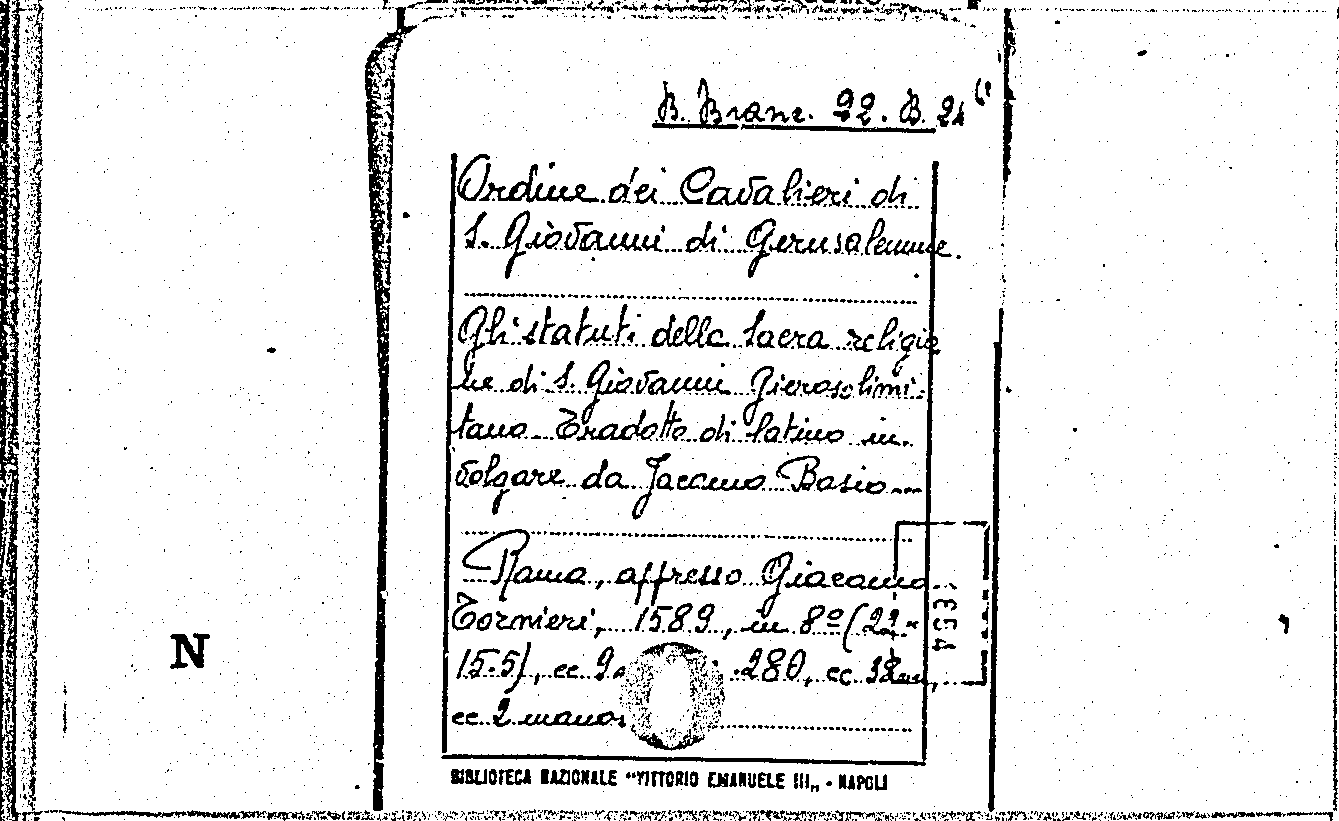 B. Branc. 22. B. 24
Ordine dei Cavalieri di
S. Giovanni di Gerusalemme.
Gli statuti della Sacra religio
ne di S. Giovanni Gierosolimi-
tano Tradotto di latino in
volgare da Jacomo Bosio
Roma, appresso Giacomo
Tornieri, 1589, in 8º (22 x
15.5), cc 280, cc
cc 2 manos
N
BIBLIOTECA NAZIONALE "VITTORIO EMANUELE III„ - NAPOLI